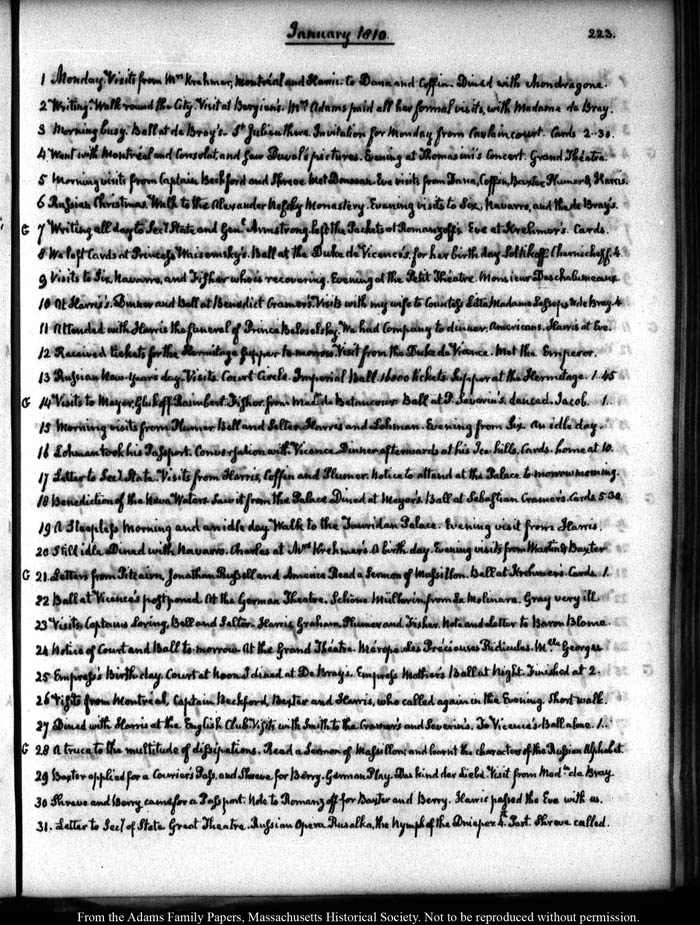 January 1810.
223.
1 Monday. Visits from Mrs Krehmer, Montréal and Harris. To Dana and Coffin. Dined with Mondragone.
2 Writing. Walk round the City. Visit at Bergien's. Mrs Adams paid all her formal visits, with Madame de Bray.
3 Morning busy. Ball at de Bray's. St Julien there. Invitation for Monday from Caulaincourt. Cards 2.30.
4 Went with Montréal and Consolat, and saw Duval's pictures. Evening at Thomasini's Concert. Grand Théatre.
5 Morning visits from Captain Beckford and Shreve Met Eve visits from Dana, Coffin, Baxter, Plumer & Harris.
6 Russian Christmas. Walk to the Alexander Nefsky Monastery. Evening visits to Six, Navarro, and the de Bray's.
G 7 Writing all day to Secy State and Genl Armstrong. left the Packets at Romanzoff's. Eve at Krehmer's. Cards.
8 We left Cards at Princess Ball at the Duke de Vicence's, for her birth day Soltikoff. Chernicheff. 4
9 Visits to Six, Navarro, and Fisher who is recovering. Evening at the Petit Théatre. Monsieur Deschalumeaux
10 At Harris's. Dinner and Ball at Benedict Cramer's. Visits with my wife to Countess Litta Madame Lesseps & de Bray. 4
11 Attended with Harris the funeral of Prince Beloselsky. We had Company to dinner. Americans. Harris at Eve.
12 Received tickets for the Hermitage supper to-morrow. Visit from the Duke de Vicence. Met the Emperor.
13 Russian New-Year's day. Visits. Court Circle. Imperial Ball. 16000 tickets. Supper at the Hermitage. 1.45
G 14 Visits to Meyer, Raimbert, Fisher, from Made de Betancour. Ball at P. Severin's. danced. Jacob. 1.
15 Morning visits from Plumer, Bell and Salter, Harris and Lohman. Evening from Six. An idle day.
16 Lohman took his Passport. Conversation with Vicence. Dinner afterwards at his Ice hills. Cards. home at 10.
17 Letter to Secy State. Visits from Harris, Coffin and Plumer. Notice to attend at the Palace to-morrow morning.
18 Benediction of the Neva Waters. Saw it from the Palace. Dined at Meyer's. Ball at Sebastian Cramer's. Cards 5.30.
19 A Sleepless Morning and an idle day. Walk to the Tauridan Palace. Evening visit from Harris.
20 Still idle. Dined with Navarro. Charles at Mrs Krehmer's. A birth day. Evening visits from Martin & Baxter
G 21. Letters from Pitcairn, Jonathan Russell and America Read a Sermon of Massillon. Ball at Krehmer's. Cards 1.
22 Ball at Vicence's postponed. At the German Theatre. Schöne Müllerin, from La Molinara. Gray very ill
23 Visits, Captains Loring, Bell and Salter. Harris Graham, Plumer and Fisher. Note and Letter to Baron Blome.
24 Notice of Court and Ball to-morrow. At the Grand Théatre. Mérope. Les Précieuses Ridicules. Mlle Georges
25 Empress's Birth day. Court at Noon. I dined at De Bray's. Empress Mother's Ball at Night. Finished at 2.
26 Visits from Montréal, Captain Beckford, Baxter and Harris, who called again in the Evening. Short walk.
27 Dined with Harris at the English Club. Visits with Smith to the Cramer's and Severin's. To Vicence's Ball alone. 1.
G 28 A truce to the multitude of dissipations. Read a Sermon of Massillon; and learnt the characters of the Russian Alphabet.
29 Baxter applied for a Courier's Pass, and Shreve for Berry. German Play. Das Kind der Liebe. Visit from Made de Bray
30 Shreve and Berry came for a Passport. Note to Romanzoff for Baxter and Berry. Harris passed the Eve with us.
31. Letter to Secy of State Great Theatre. Russian Opera. Rusalka, the Nymph of the Dnieper 4th Part. Shreve called.
From the Adams Family Papers, Massachusetts Historical Society. Not to be reproduced without permission.